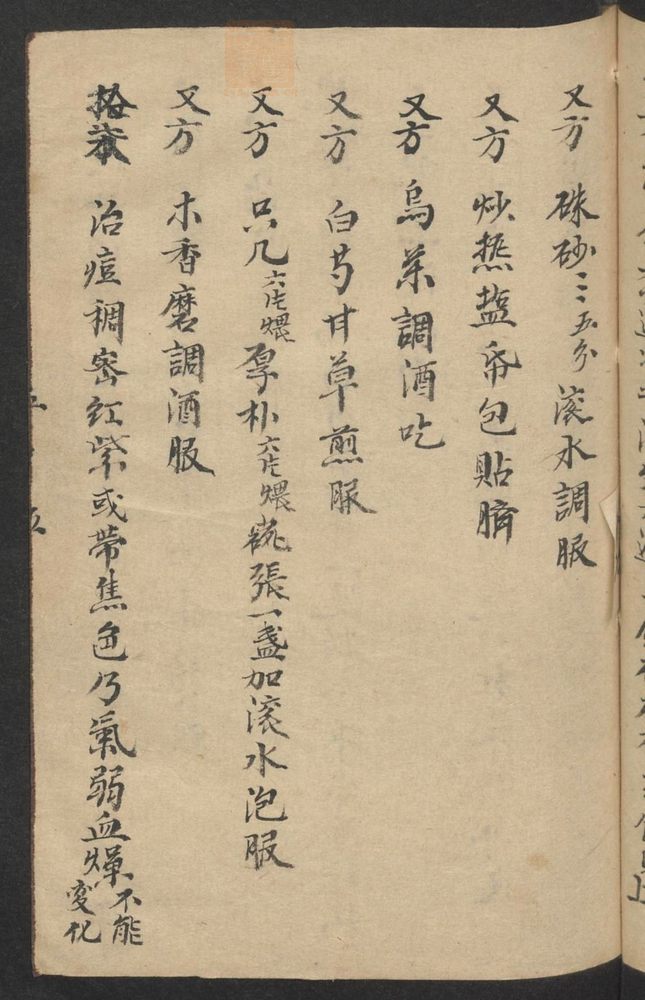 又方 硃砂三五分滚水調服
又方 炒热盐帋包貼臍
又方 烏茶調酒吃
又方 白芍甘草煎服
又方 只几六片煨厚朴六片煨 張一盞加滚水泡服
又方 木香磨調酒服
拾柒 治痘稠密红紫或帶焦色乃氣弱血燥不能變化